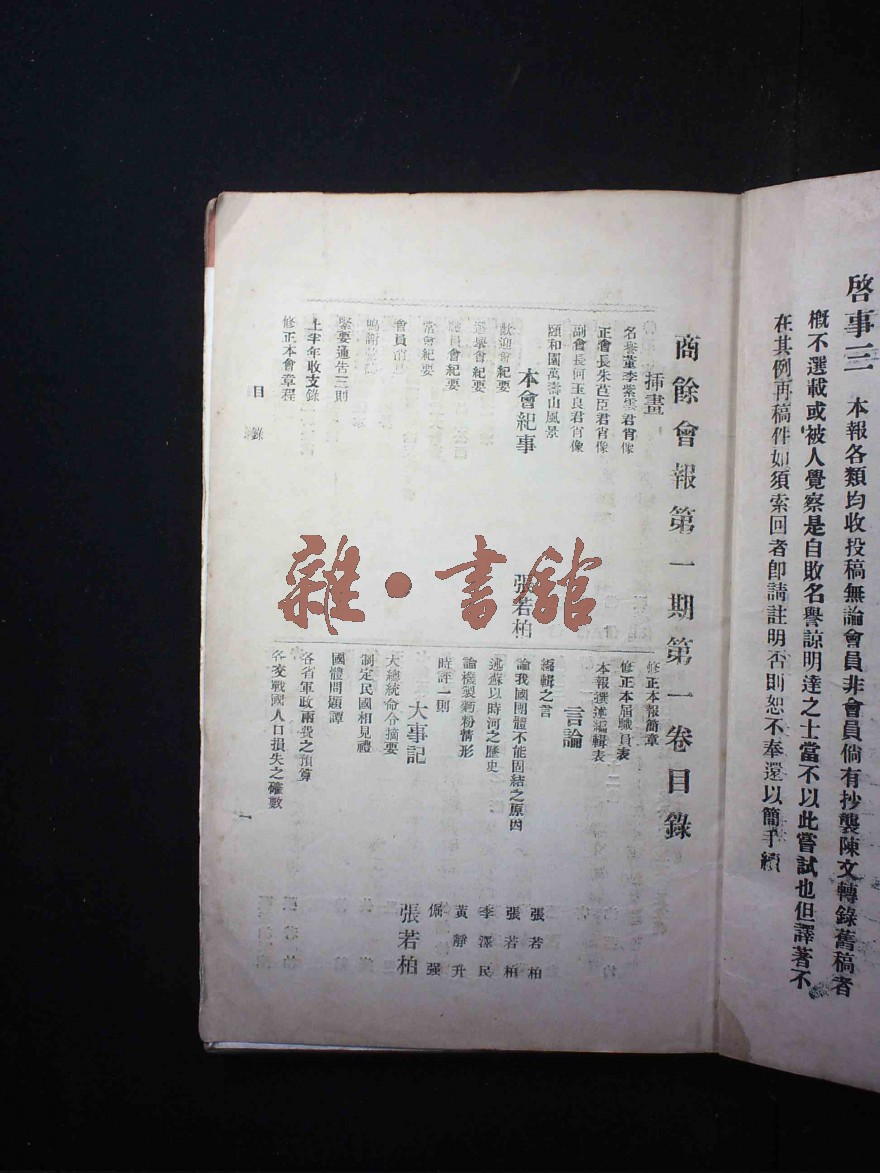 啓事三　本報各類均收投稿無論會員非會員倘有抄襲陳文轉錄舊稿者
概不選載或被人覺察是自敗名譽諒明達之士當不以此嘗試也但譯著不
在其例再稿件如須索回者卽請註明否則恕不奉還以簡手續
商餘會報第一期第一卷目錄
揷畫
名譽董李紫雲君肖像
正會長朱芭臣君肖像
副會長何玉良君肖像
頤和園萬壽山風景
本會紀事　張若柏
歡迎會紀要
選舉會紀要
職員會紀要
常會紀要
會員消
鳴謝
緊要通告三則
上半年收支錄
修正本會章程
修正本報簡章
修正本屆職員表
本報撰述編輯表
言論
編輯之言　張若柏
論我國團體不能固結之原因　張若柏
述蘇以時河之歷史　李澤民
論機製麵粉情形　黃靜升
時評一則　佩强
大事記　張若柏
大總統命令摘要
制定民國相見禮
國體問題譚
各省軍政兩費之預算
各交戰國人口損失之確數
目錄
一
雜·書館